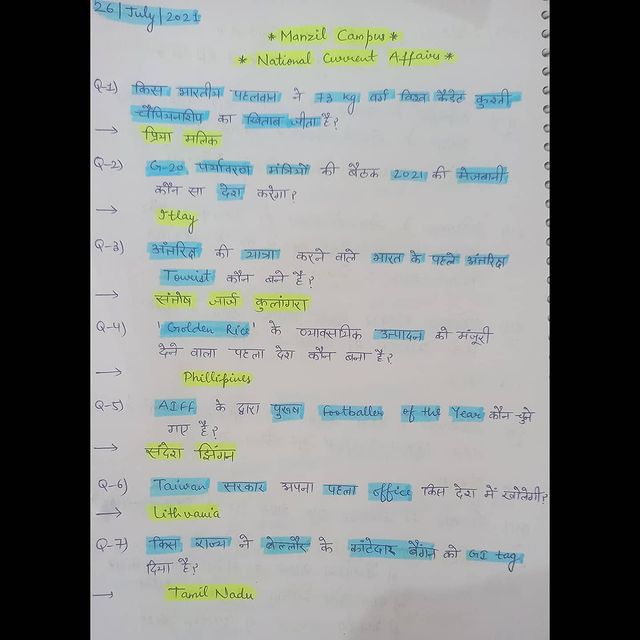 26|July|2021
* Manzil Campus *
* National Current Affairs *
Q-1) किस भारतीय पहलवान ने 73 kg वर्ग विश्व कैडेट कुश्ती
चैंपियनशिप का खिताब जीता है?
→ प्रिया मलिक
Q-2) G-20 पर्यावरण मंत्रियों की बैठक 2021 की मेजबानी
कौन सा देश करेगा?
→ Itlay
Q-3) अंतरिक्ष की यात्रा करने वाले भारत के पहले अंतरिक्ष
Tourist कौन बने है?
→ संतोष जार्ज कुलांगरा
Q-4) 'Golden Rice' के व्यावसायिक उत्पादन को मंजूरी
देने वाला पहला देश कौन बना है?
→ Phillipines
Q-5) AIFF के द्वारा पुरुष Footballer of the Year कौन चुने
गए है?
→ संदेश झिंगन
Q-6) Taiwan सरकार अपना पहला office किस देश में खोलेगी?
→ Lithvania
Q-7) किस राज्य ने वेल्लौर के कांटेदार बैंगन को GI tag
दिया है?
→ Tamil Nadu